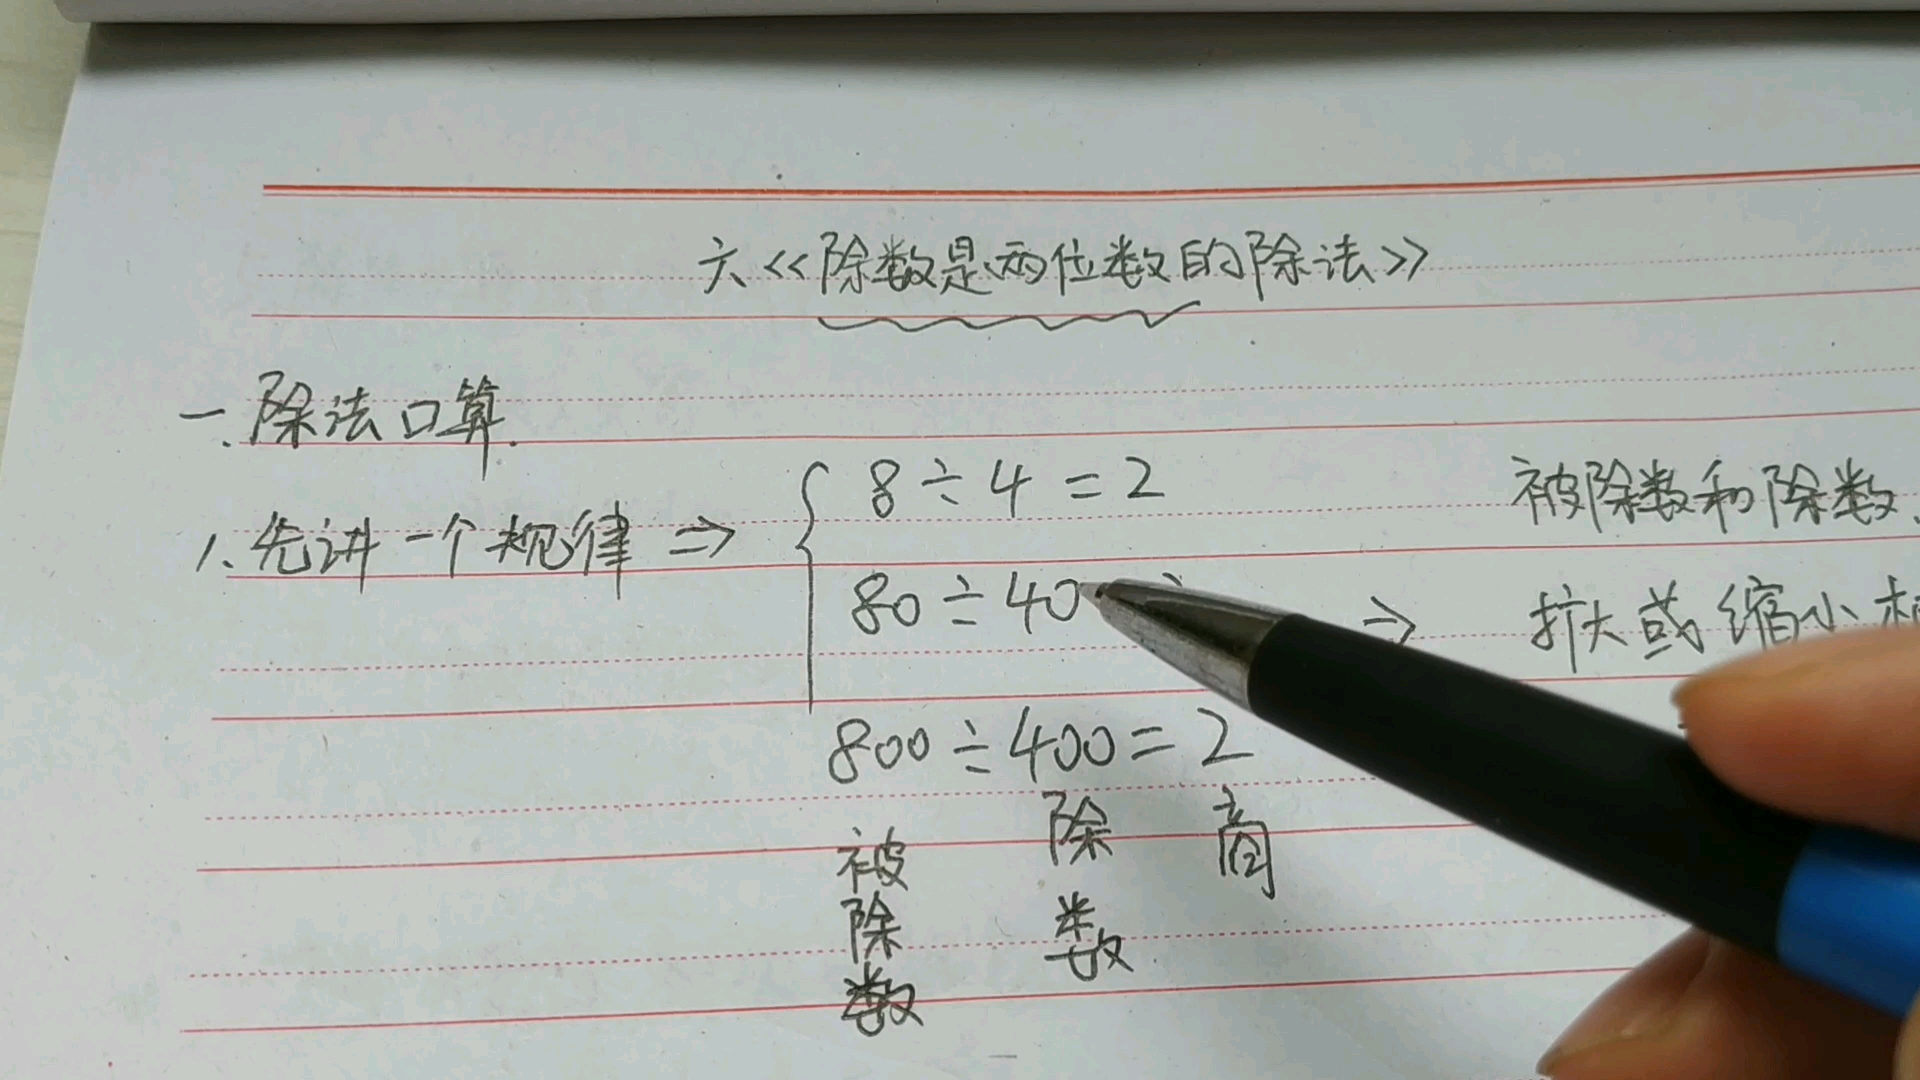 六《除数是两位数的除法》
一.除法口算.
1.先讲一个规律⇒
8÷4=2
80÷40
800÷400=2
被除数 除数 商
⇒ 被除数和除数
扩大或缩小